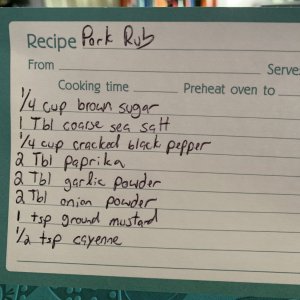 Recipe Pork Rub
From Serve
Cooking time Preheat oven to
1/4 cup brown sugar
1 Tbl coarse sea salt
1/4 cup cracked black pepper
2 Tbl paprika
2 Tbl garlic powder
2 Tbl onion powder
1 tsp ground mustard
1/2 tsp cayenne